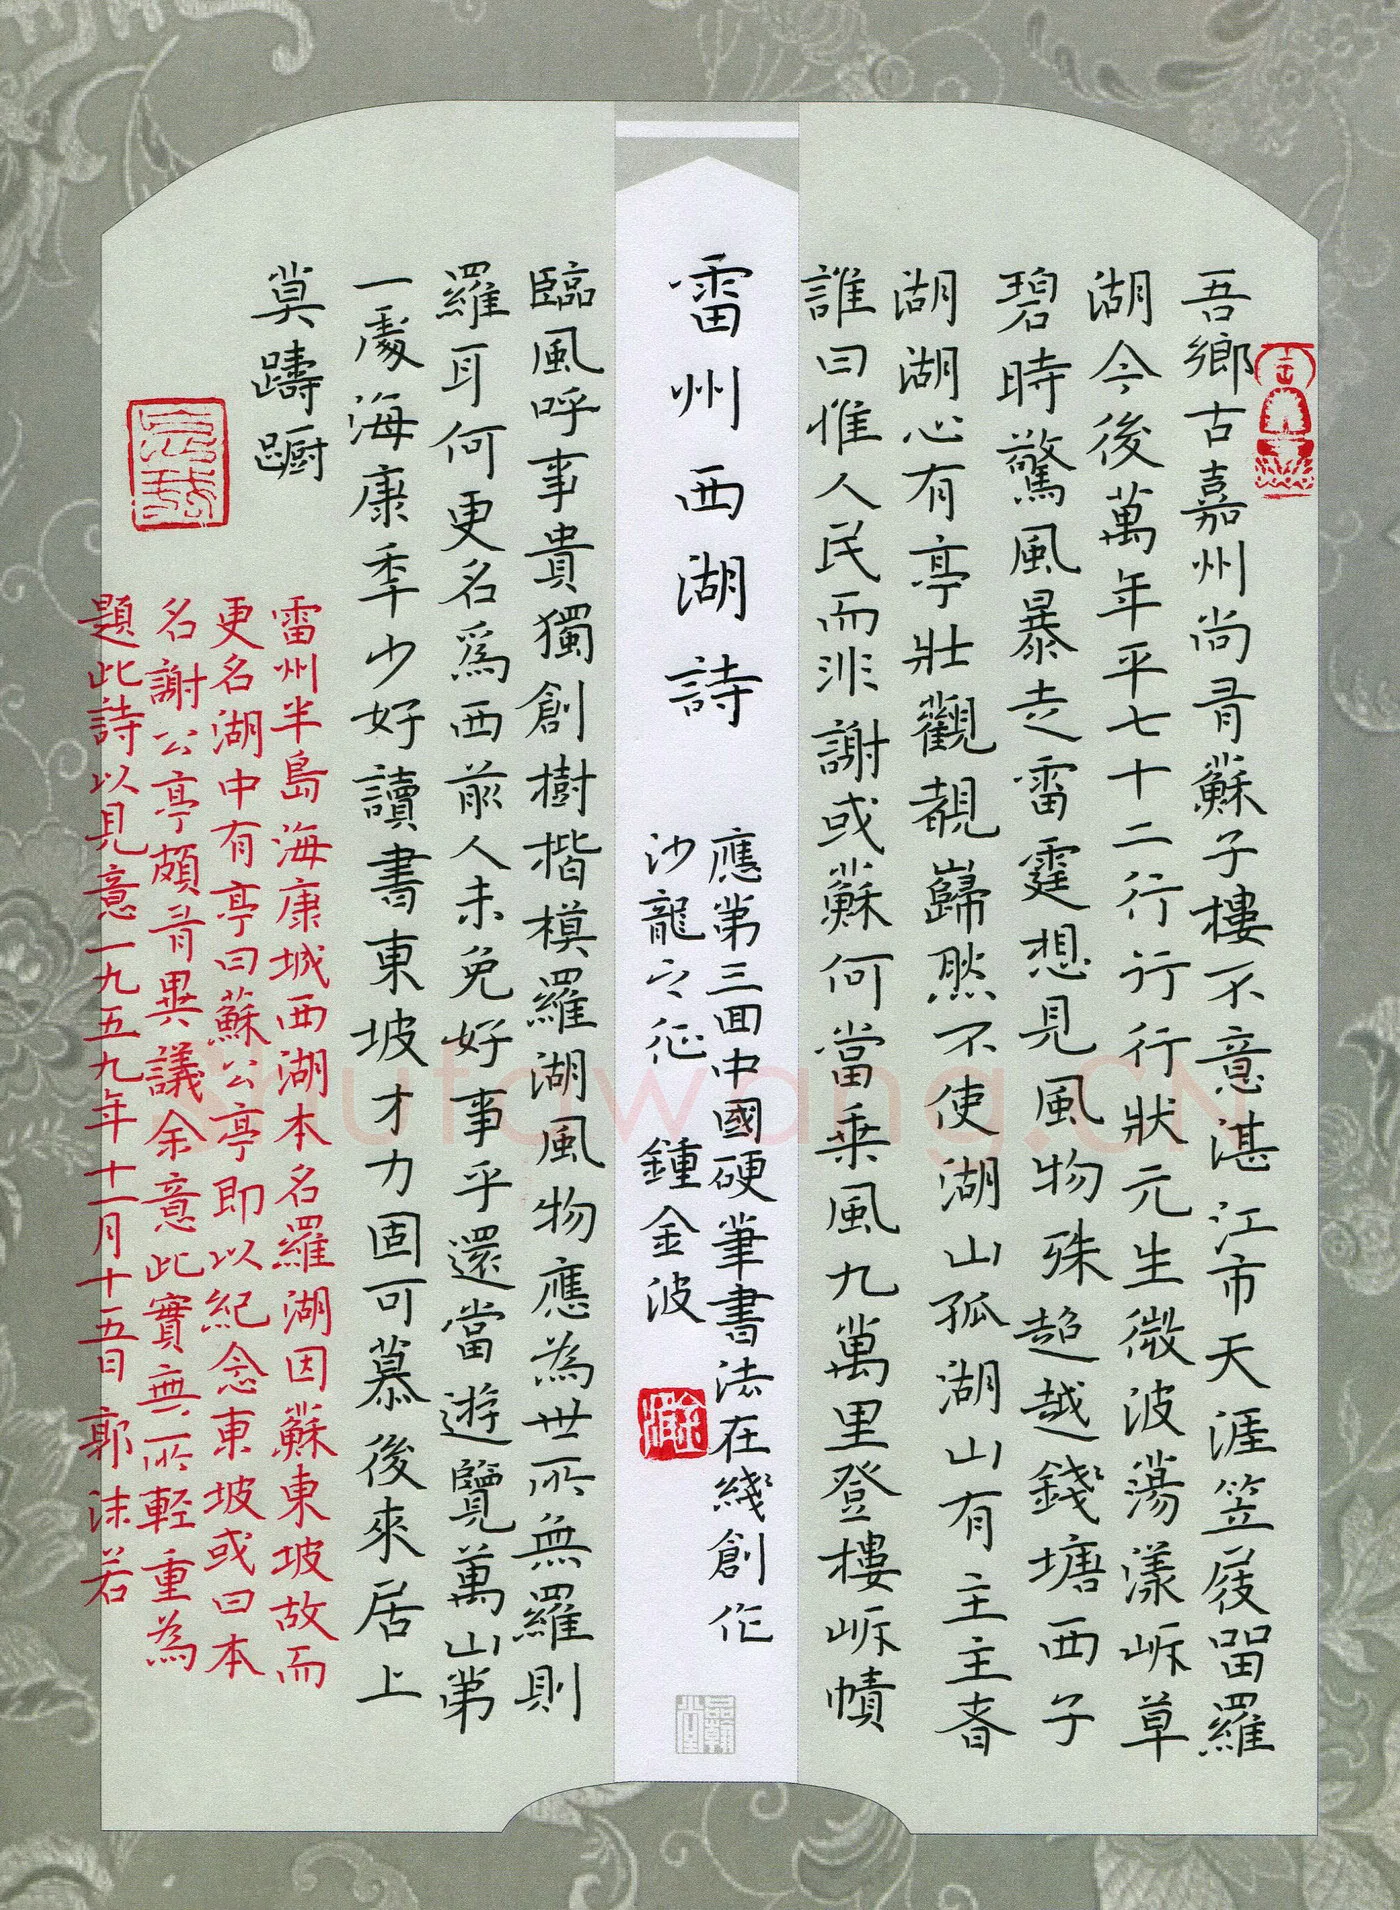 吾鄉古嘉州尚有蘇子樓不意湛江市天涯笠屐留羅
湖今後萬年平七十二行行行狀元生微波蕩漾岸草
碧時驚風暴走雷霆想見風物殊超越錢塘西子
湖湖心有亭壯觀靚巋然不使湖山孤湖山有主主者
誰曰惟人民而非謝或蘇何當乘風九萬里登樓岸幘
雷州西湖詩
應第三回中國硬筆書法在綫創作
沙龍之征 鍾金波
臨風呼事貴獨創樹楷模羅湖風物應為世所無羅則
羅耳何更名爲西前人未免好事乎還當遊覽萬山第
一處海康年少好讀書東坡才力固可慕後來居上
莫躊躕
雷州半島海康城西湖本名羅湖因蘇東坡故而
更名湖中有亭曰蘇公亭即以紀念東坡或曰本
名謝公亭頗有異議余意此實無所輕重為
題此詩以見意一九五九年十一月十五日郭沫若
Shufawang.CN